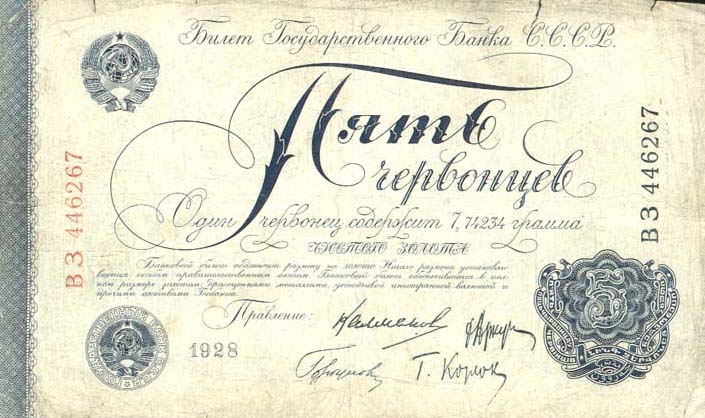 Билет Государственного Банка С.С.С.Р.
Пять
червонцев
Один червонец содержит 7,74234 грамма
чистого золота
Банковый билет подлежит размену на золото. Начало размена устанавли-
вается особым правительственным актом. Банковый билет обеспечивается в пол-
ном размере золотом, драгоценными металлами, устойчивой иностранной валютой и
прочими активами Госбанка.
Правление:
Г. Корлок
1928
ВЗ 446267
ВЗ 446267
5